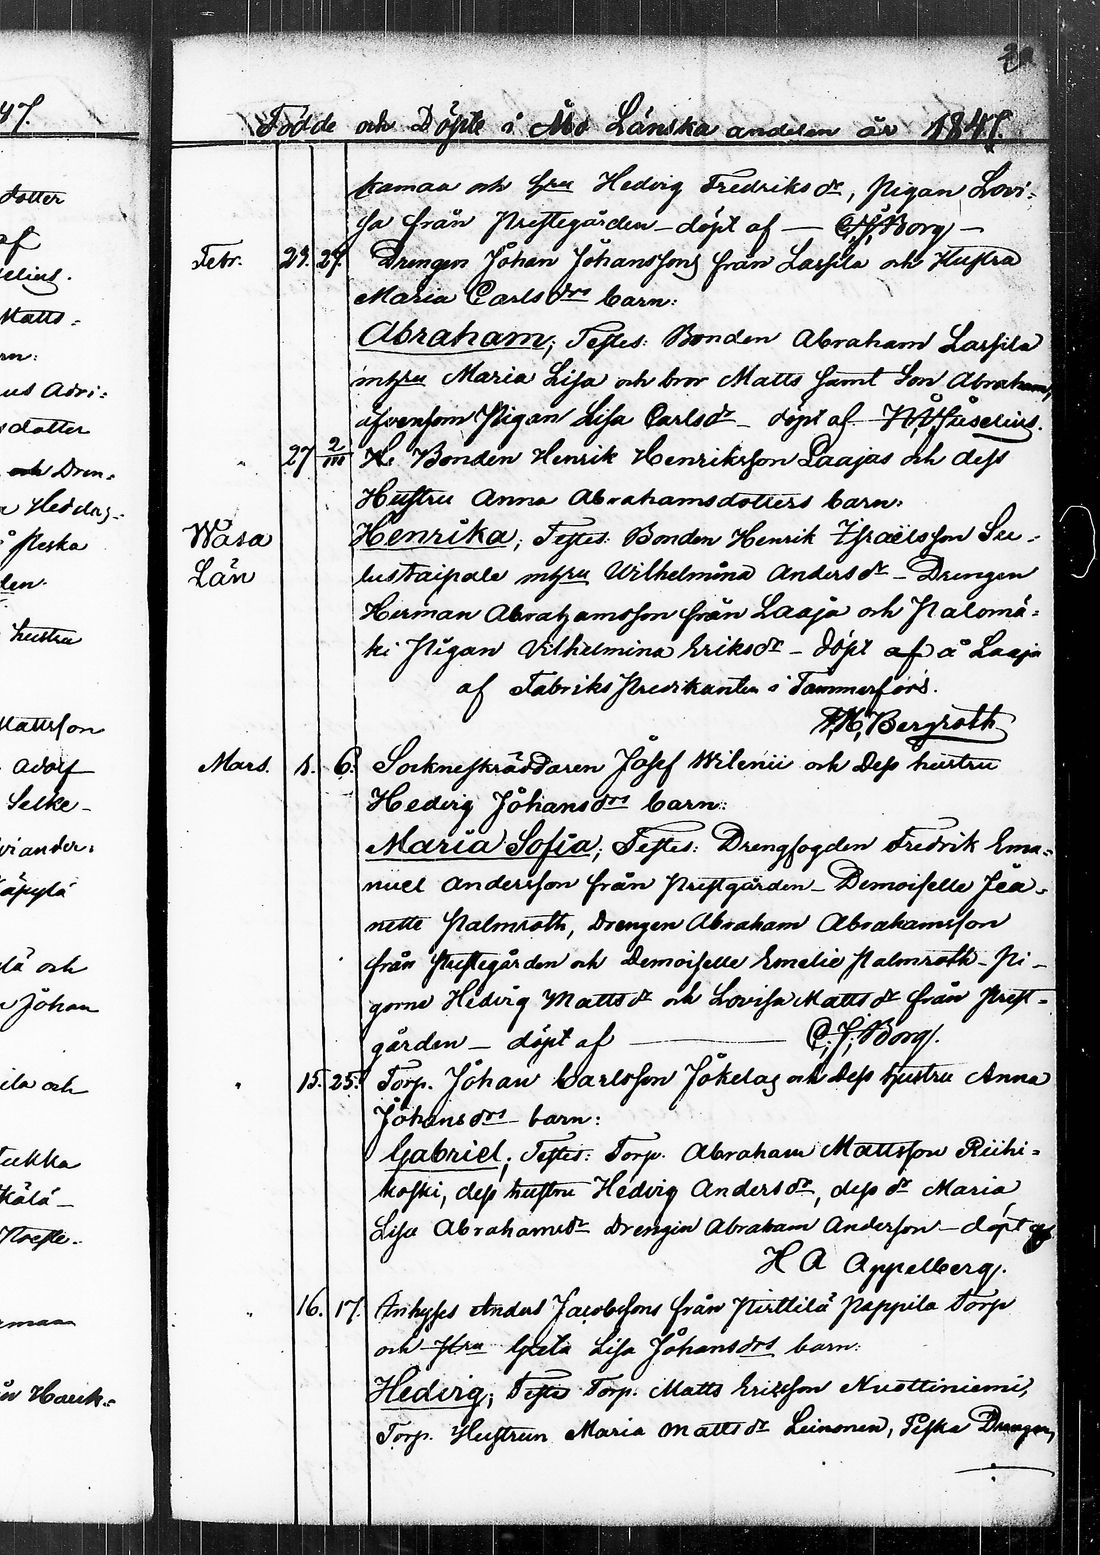 47.
dotter
af
elius.
Matts-
rn:
us Adri-
sdotter
och Dren-
a Hedvig-
Peska
den.
hustru
Mattsson
Adolf
Selke-
viander-
Käpylä
lä och
Johan
ila och
tukka
kälä-
Preste-
rmaan
än Harik-
Födde och Döpte i Åbo Länska andelen år 1847.
kamaa och hru Hedvig Fredriks dr, Pigan Lovi-
sa från Prestegården - döpt af - C. J. Borg -
Febr. 23. 27. Drengen Johan Johanssons från Lassila och Hustru
Maria Carls drs barn:
Abraham; Testes: Bonden Abraham Lassila
m hru Maria Lisa och bror Matts samt Son Abraham,
äfvensom Pigan Lisa Carls dr - döpt af
" 27 2/III Bonden Henrik Henriksson Laajas och dess
Hustru Anna Abrahamsdotters barn:
Wasa Henrika; Testes: Bonden Henrik Israëlsson Seu-
Län lustaipale m hru Wilhelmina Anders dr - Drengen
Herman Abrahamsson från Laaja och Palomä-
ki Pigan Vilhelmina Eriks dr - döpt af å Laaja
af Fabriks Predikanten i Tammerfors.
Bergroth
Mars. 1. 6. Sockneskräddaren Josef Wilenii och dess hustru
Hedvig Johans drs barn:
Maria Sofia; Testes: Drengfogden Fredrik Ema-
nuel Andersson från Prestgården - Demoiselle Jea-
nette Palmroth, Drengen Abraham Abrahamsson
från Prestegården och Demoiselle Emelie Palmroth - Pi-
gorne Hedvig Matts dr och Lovisa Matts dr från Prest-
gården - döpt af - C. J. Borg.
" 15. 25. Torp. Johan Carlsson Jokelas och dess hustru Anna
Johans drs barn:
Gabriel; Testes: Torp. Abraham Mattsson Riihi-
koski, dess hustru Hedvig Anders dr, dess dr Maria
Lisa Abrahams dr Drengen Abraham Anderson - döpt af
H A Appelberg.
" 16. 17. Inhyses Anders Jacobssons från Perttilä Pappila Torp
och Hru Greta Lisa Johans drs barn:
Hedvig; Testes Torp. Matts Eriksson Nuottiniemi,
Torp. Hustrun Maria Matts dr Leinonen, Piska Drengen,